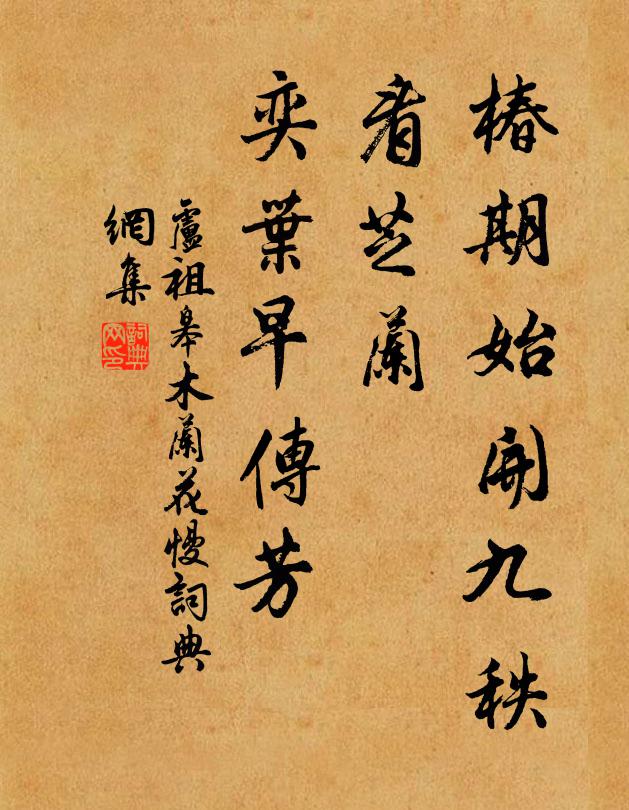 椿期始開九秩
看芝蘭
奕葉早傳芳
盧祖皋木蘭花慢詞典
網集
詞典
网印